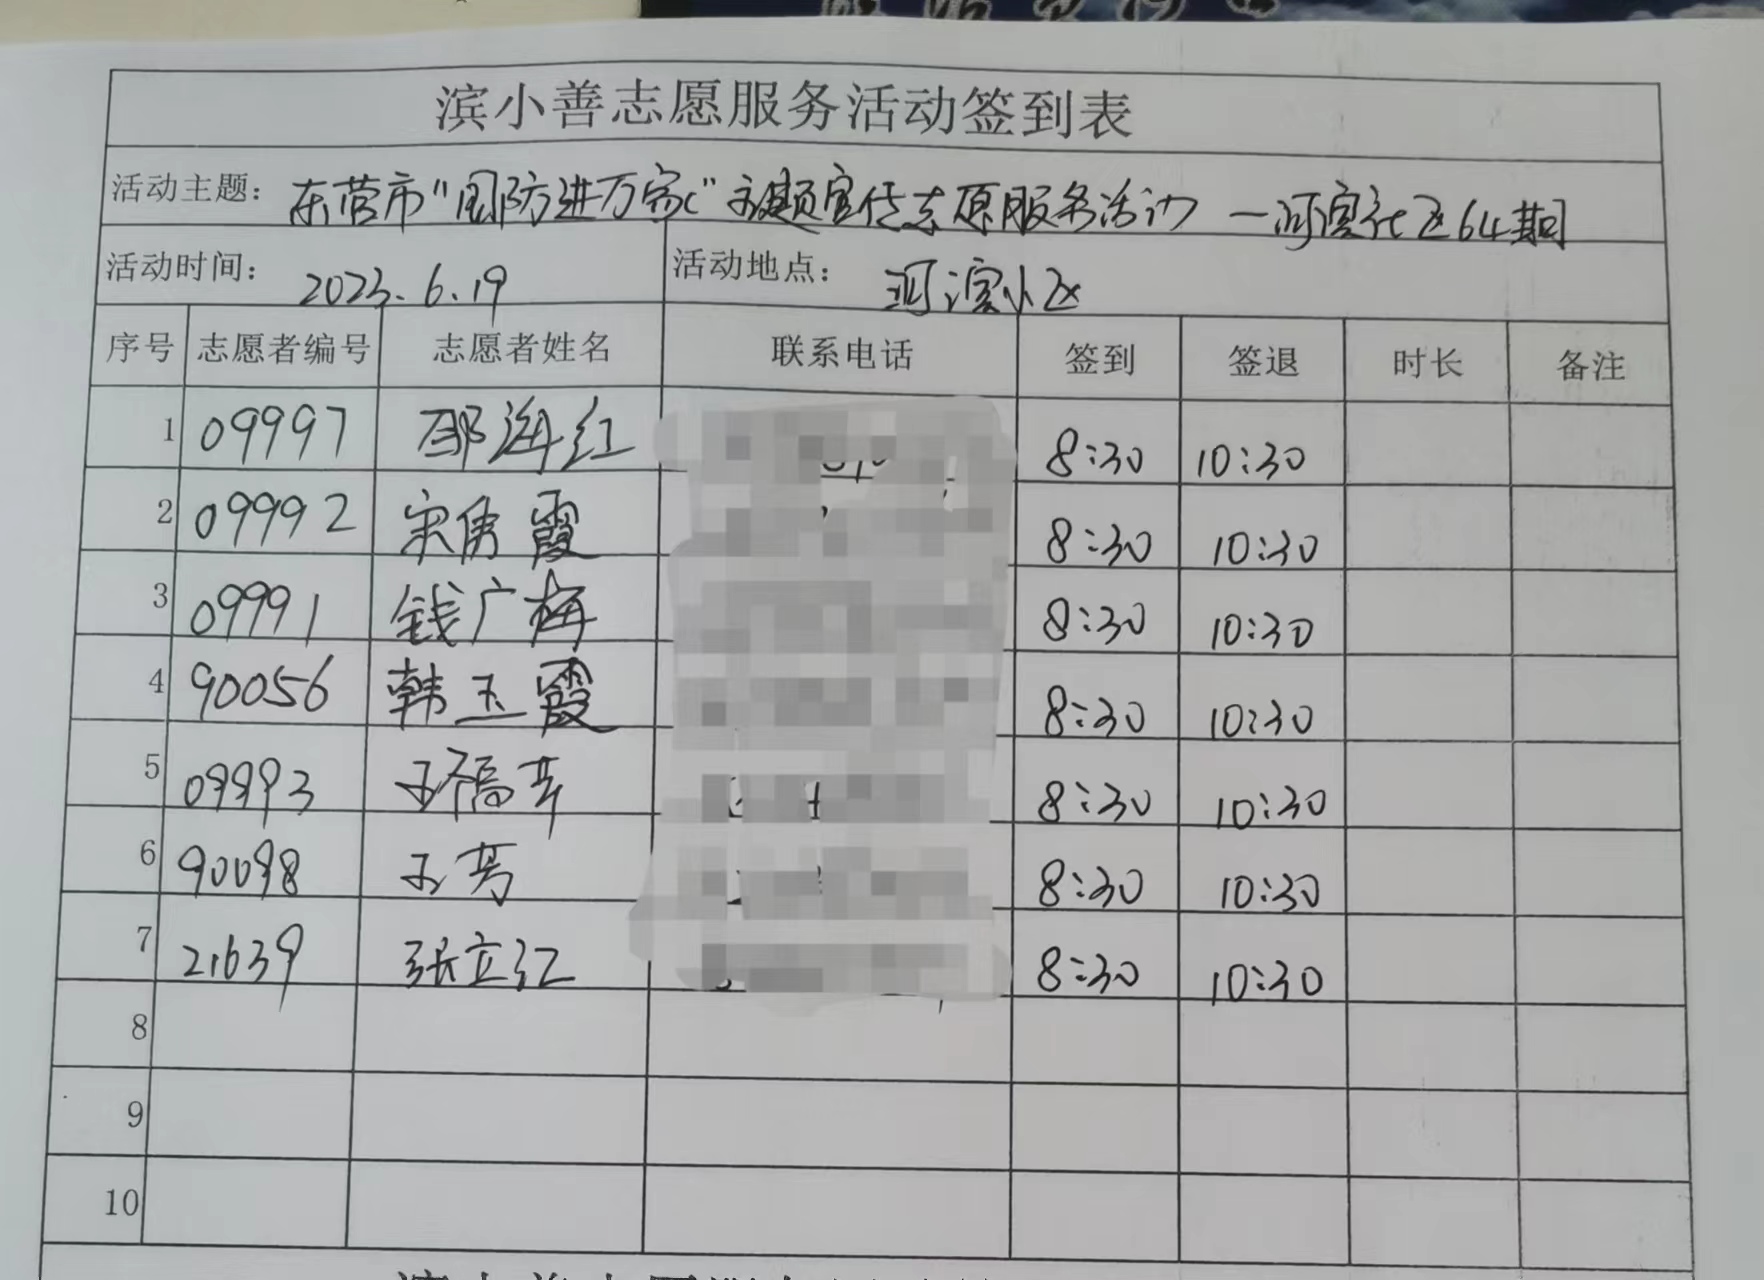 滨小善志愿服务活动签到表
活动主题: 东营市"国防进万家"主题宣传志愿服务活动 一河滨社区64期
活动时间: 2023.6.19 活动地点: 河滨小区
序号 志愿者编号 志愿者姓名 联系电话 签到 签退 时长 备注
1 09997 邵海红 8:30 10:30
2 09992 宋秀霞 8:30 10:30
3 09991 钱广梅 8:30 10:30
4 90056 韩玉霞 8:30 10:30
5 09993 王福 8:30 10:30
6 90098 王芳 8:30 10:30
7 21639 张立红 8:30 10:30
8
9
10